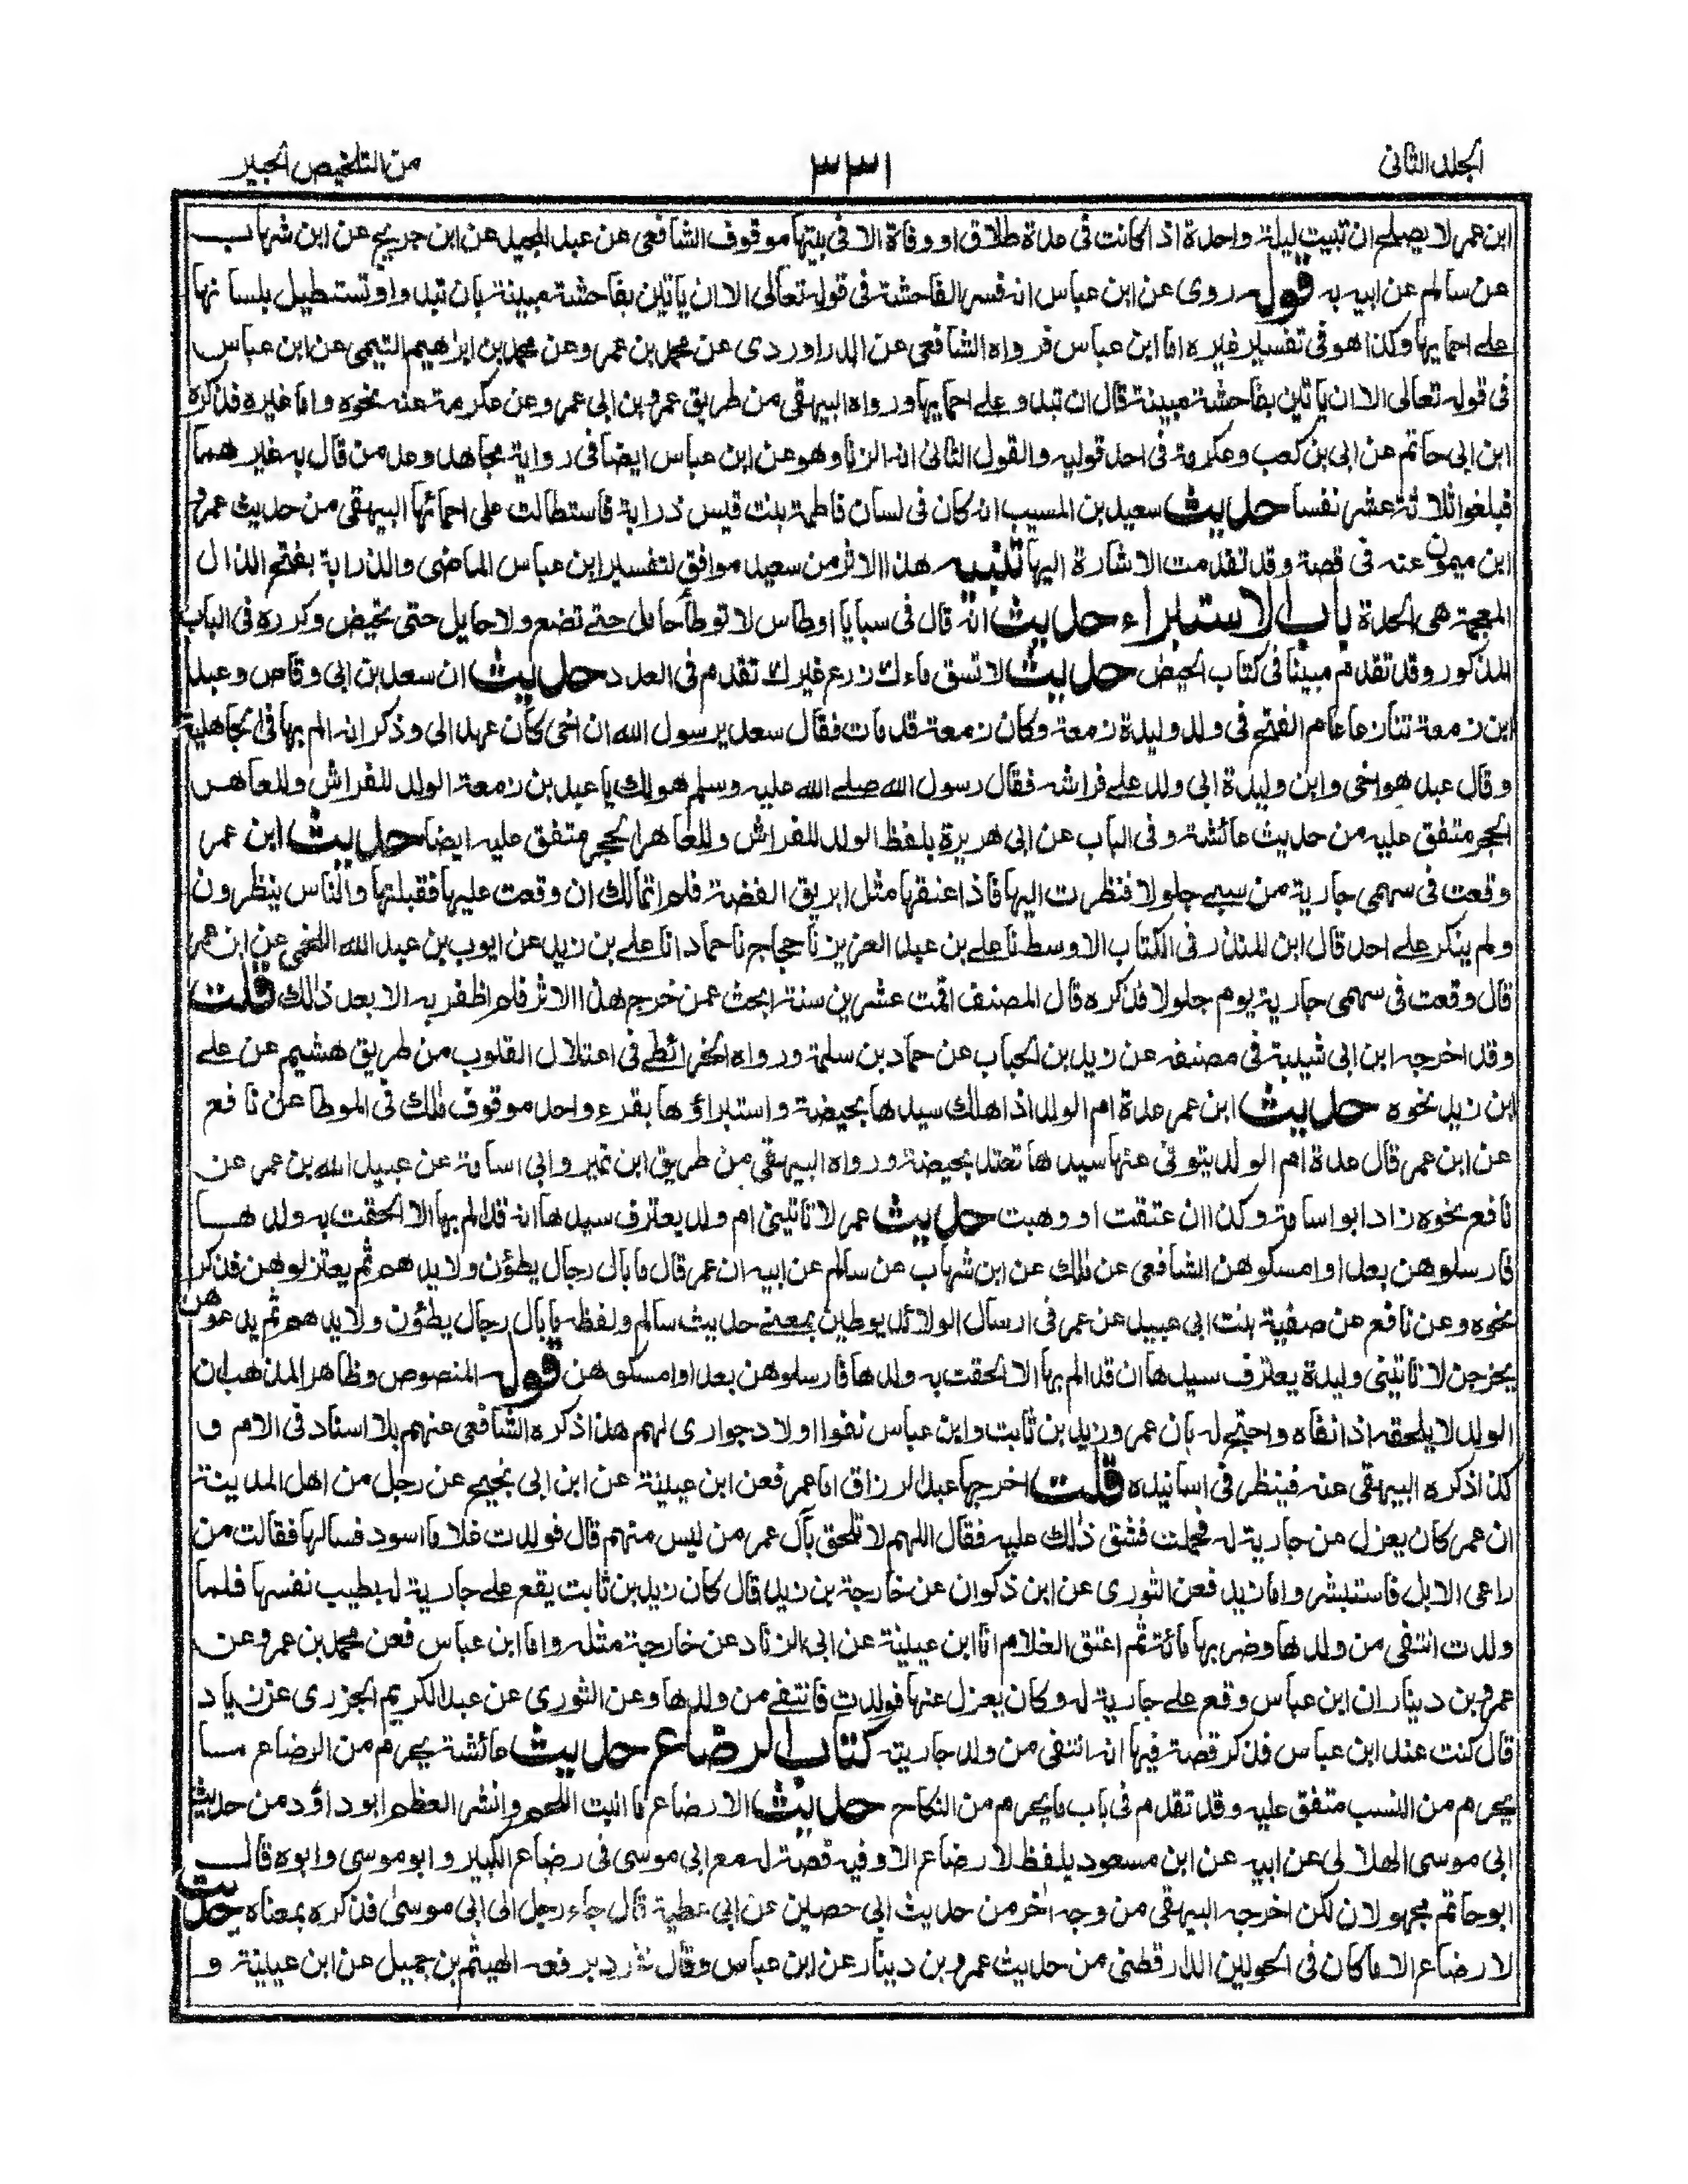 الجلد الثانى
٣٣١
من التلخيص الحبير
ابن عمر لا يصلح ان تبيت ليلة واحدة اذا كانت فى عدة طلاق او وفاة الا فى بيتها موقوف الشافعى عن عبد المجيد عن ابن جريج عن ابن شهاب
عن سالم عن ابيه به قوله روى عن ابن عباس انه فسر الفاحشة فى قوله تعالى الا ان ياتين بفاحشة مبينة بان تبدوا وتستطيل بلسا نها
على احمايها وكذا هو فى تفسير غيره اما ابن عباس فرواه الشافعى عن الدراوردى عن محمد بن عمرو عن محمد بن ابراهيم التيمى عن ابن عباس
فى قوله تعالى الا ان ياتين بفاحشة مبينة قال ان تبدو على احمايها ورواه البيهقى من طريق عمرو بن ابى عمرو عن عكرمة عنه نحوه واما غيره فذكره
ابن ابى حاتم عن ابى بن كعب وعكرمة فى احد قوليه والقول الثانى انه الزنا وهو عن ابن عباس ايضا فى رواية مجاهد وعد من قال به غير هما
فبلغوا ثلاثة عشر نفسا حديث سعيد بن المسيب انه كان فى لسان فاطمة بنت قيس ذرابة فاستطالت على احمائها البيهقى من حديث عمرو
ابن ميمون عنه فى قصة وقد تقدمت الاشارة اليها تنبيه هذا الاثر من سعيد موافق لتفسير ابن عباس الماضى والذرابة بفتح الذال
المعجمة هى الحدة باب الاستبراء حديث انه قال فى سبايا اوطاس لا توطأ حامل حتى تضع ولا حايل حتى تحيض وكرره فى الباب
المذكور وقد تقدم مبينا فى كتاب الحيض حديث لا تسق ماءك زرع غيرك تقدم فى العدد حديث ان سعد بن ابى وقاص وعبد
ابن زمعة تنازعا عام الفتح فى ولد وليدة زمعة وكان زمعة قد مات فقال سعد يرسول الله ان اخى كان عهد الى وذكر انه الم بها فى الجاهلية
وقال عبد هو اخى وابن وليدة ابى ولد على فراشه فقال رسول الله صلى الله عليه وسلم هو لك يا عبد بن زمعة الولد للفراش وللعاهر
الحجر متفق عليه من حديث عائشة وفى الباب عن ابى هريرة بلفظ الولد للفراش وللعاهر الحجر متفق عليه ايضا حديث ابن عمر
وقعت فى سهمى جارية من سبى جلولا فنظرت اليها فاذا عنقها مثل ابريق الفضة فلم اتمالك ان وقعت عليها فقبلتها والناس ينظرون
ولم ينكر على احد قال ابن المنذر فى الكتاب الاوسط نا على بن عبد العزيز نا حجاج نا حماد انا على بن زيد عن ايوب بن عبد الله اللخمى عن ابن عمر
قال وقعت فى سهمى جارية يوم جلولا فذكره قال المصنف اقمت عشرين سنة ابحث عمن خرج هذا الاثر فلم اظفر به الا بعد ذلك قلت
وقد اخرجه ابن ابى شيبة فى مصنفه عن زيد بن الحباب عن حماد بن سلمة ورواه الخرائطى فى اعتلال القلوب من طريق هشيم عن على
ابن زيد نحوه حديث ابن عمر عدة ام الولد اذا هلك سيدها بحيضة واستبراؤها بقرء واحد موقوف مالك فى الموطا عن نافع
عن ابن عمر قال عدة ام الولد يتوفى عنها سيدها تعتد بحيضة ورواه البيهقى من طريق ابن نمير وابى اسامة عن عبيد الله بن عمر عن
نافع نحوه زاد ابو اسامة وكذا ان عتقت او وهبت حديث عمر لا تاتينى ام ولد يعترف سيدها انه قد الم بها الا الحقت به ولد هــا
فارسلوهن بعد او امسكوهن الشافعى عن مالك عن ابن شهاب عن سالم عن ابيه ان عمر قال ما بال رجال يطؤن ولايدهم ثم يعتزلوهن فذكر
نحوه وعن نافع عن صفية بنت ابى عبيد عن عمر فى ارسال الولائد يوطين بمعنى حديث سالم ولفظه ما بال رجال يطؤن ولايدهم ثم يدعوهن
يخرجن لا تاتينى وليدة يعترف سيدها ان قد الم بها الا الحقت به ولدها فارسلوهن بعد او امسكوهن قوله المنصوص وظاهر المذهب ان
الولد لا يلحقه اذا نفاه واحتج له بان عمر وزيد بن ثابت وابن عباس نفوا اولاد جوارى لهم هذا ذكره الشافعى عنهم بلا اسناد فى الام و
كذا ذكره البيهقى عنه فينظر فى اسانيده قلت اخرجها عبد الرزاق اما عمر فعن ابن عيينة عن ابن ابى نجيح عن رجل من اهل المدينة
ان عمر كان يعزل عن جارية له فحملت فشق ذلك عليه فقال اللهم لا تلحق بآل عمر من ليس منهم قال فولدت غلاما اسود فسالها فقالت من
راعى الابل فاستبشر واما زيد فعن الثورى عن ابن ذكوان عن خارجة بن زيد قال كان زيد بن ثابت يقع على جارية له بطيب نفسها فلما
ولدت انتفى من ولدها وضربها مائة ثم اعتق الغلام انا ابن عيينة عن ابى الزناد عن خارجة مثله واما ابن عباس فعن محمد بن عمرو عن
عمرو بن دينار ان ابن عباس وقع على جارية له وكان يعزل عنها فولدت فانتفى من ولدها وعن الثورى عن عبد الكريم الجزرى عن زياد
قال كنت عند ابن عباس فذكر قصة فيها انه انتفى من ولد جاريته كتاب الرضاع حديث عائشة يحرم من الرضاع مــا
يحرم من النسب متفق عليه وقد تقدم فى باب ما يحرم من النكاح حديث الا رضاع ما انبت اللحم وانشر العظم ابو داؤد من حديث
ابى موسى الهلالى عن ابيه عن ابن مسعود بلفظ لا رضاع الا وفيه قصة له مع ابى موسى فى رضاع الكبير وابو موسى وابوه قال
ابو حاتم مجهولان لكن اخرجه البيهقى من وجه اخر من حديث ابى حصين عن ابى عطية قال جاء رجل الى ابى موسى فذكره بمعناه حديث
لا رضاع الا ما كان فى الحولين الدارقطنى من حديث عمرو بن دينار عن ابن عباس وقال تفرد برفعه الهيثم بن جميل عن ابن عيينة و